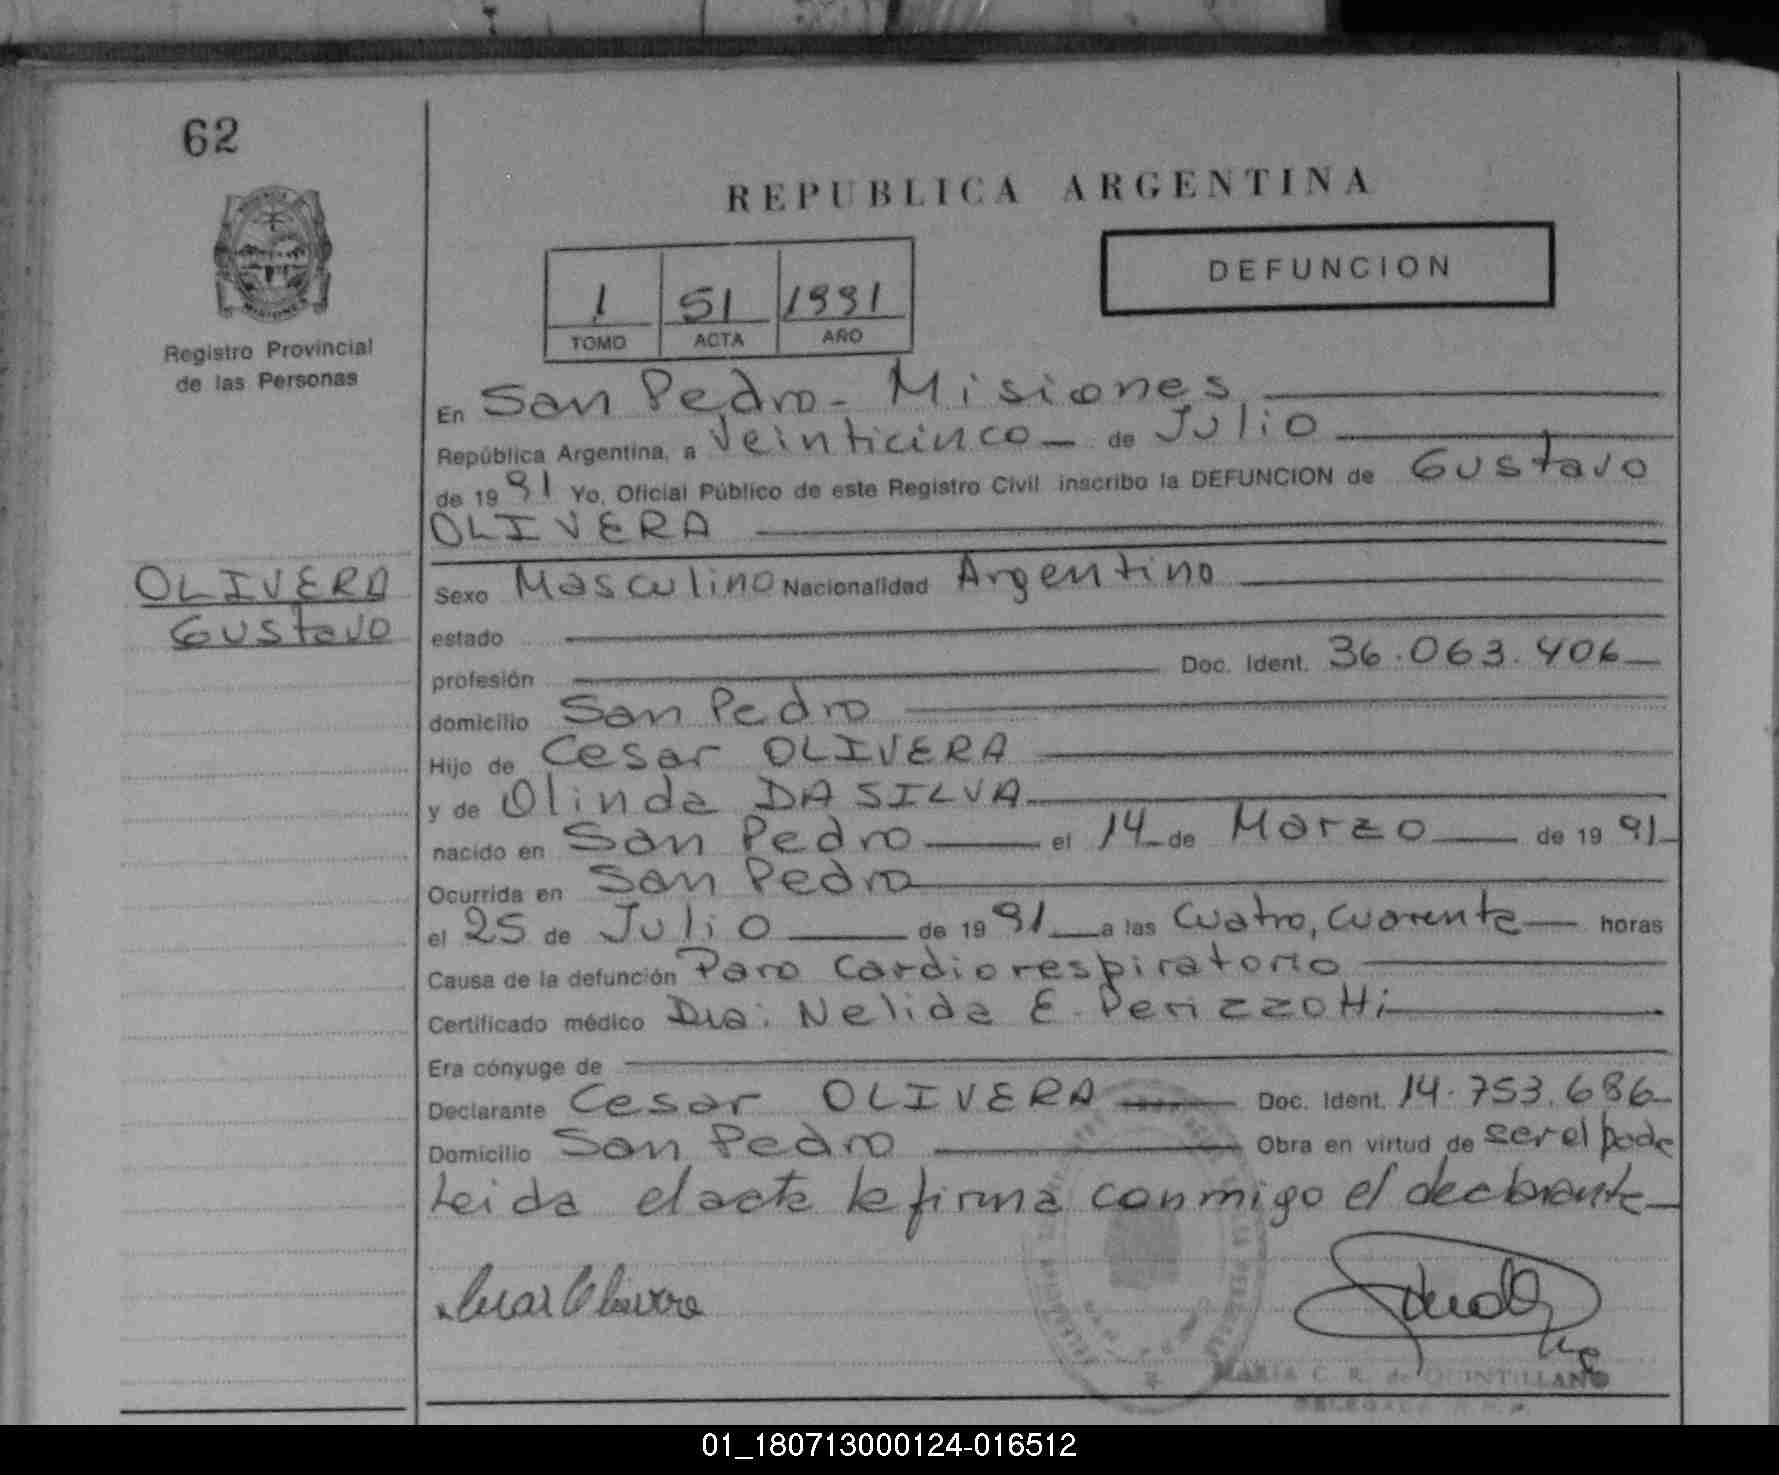 62
REPUBLICA ARGENTINA
DEFUNCION
1 51 1991
TOMO ACTA AÑO
Registro Provincial
de las Personas
En San Pedro - Misiones
República Argentina, a Veinticinco de Julio
de 19 91 Yo, Oficial Público de este Registro Civil inscribo la DEFUNCION de Gustavo
OLIVERA
OLIVERA
Gustavo
Sexo Masculino Nacionalidad Argentino
estado
profesión Doc. Ident. 36.063.406
domicilio San Pedro
Hijo de Cesar OLIVERA
y de Olinda DA SILVA
nacido en San Pedro el 14 de Marzo de 19 91
Ocurrida en San Pedro
el 25 de Julio de 19 91 a las Cuatro, Cuarenta horas
Causa de la defunción Paro Cardiorespiratorio
Certificado médico Dra: Nelida E. Perizzotti
Era cónyuge de
Declarante Cesar OLIVERA Doc. Ident. 14.753.686
Domicilio San Pedro Obra en virtud de ser el padre
Leida el acta la firma conmigo el declarante
Olivera
MARIA C. R. de QUINTILLANO
DELEGADA R.P.P.
01_180713000124-016512